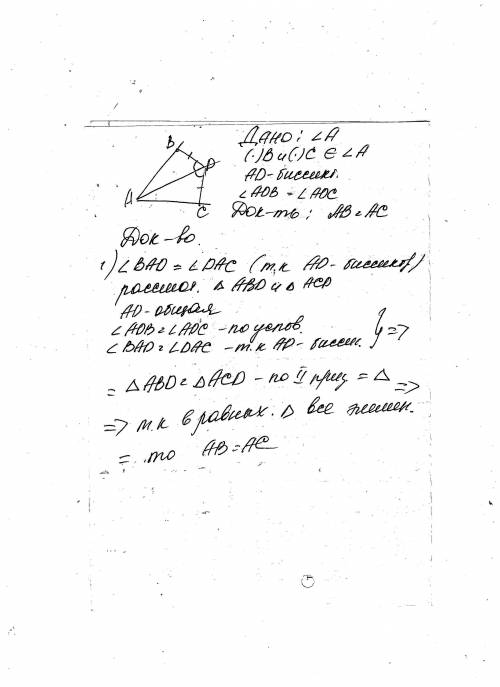 B
D
A
C
ДАНО: ∠A
(·)B и (·)C ∈ ∠A
AD-биссект.
∠ADB = ∠ADC
Док-ть: AB = AC
Док-во.
1) ∠BAD = ∠DAC (т.к AD-биссект)
рассмот. △ABD и △ACD
AD-общая
∠ADB = ∠ADC - по услов.
∠BAD = ∠DAC - т.к AD-биссек. } =>
= △ABD = △ACD - по II приз = △ =>
=> т.к в равных. △ все элемен.
= то AB = AC